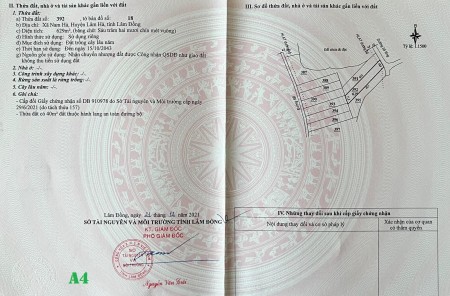 II. Thửa đất, nhà ở và tài sản khác gắn liền với đất
1. Thửa đất:
a) Thửa đất số: 392 , tờ bản đồ số: 18
b) Địa chỉ: Xã Nam Hà, Huyện Lâm Hà, tỉnh Lâm Đồng
c) Diện tích: 629m², (bằng chữ: Sáu trăm hai mươi chín mét vuông)
d) Hình thức sử dụng: Sử dụng riêng
đ) Mục đích sử dụng: Đất trồng cây lâu năm
e) Thời hạn sử dụng: Đến ngày 15/10/2043
g) Nguồn gốc sử dụng: Nhận chuyển nhượng đất được Công nhận QSDĐ như giao đất
không thu tiền sử dụng đất
2. Nhà ở: -/-
3. Công trình xây dựng khác: -/-
4. Rừng sản xuất là rừng trồng: -/-
5. Cây lâu năm: -/-
6. Ghi chú:
- Cấp đổi Giấy chứng nhận số DB 910978 do Sở Tài nguyên và Môi trường cấp ngày
29/6/2021 (do tách thửa 157)
- Thửa đất có 40m² đất thuộc hành lang an toàn đường bộ
Lâm Đồng, ngày tháng năm 2021
SỞ TÀI NGUYÊN VÀ MÔI TRƯỜNG TỈNH LÂM ĐỒNG
KT. GIÁM ĐỐC
PHÓ GIÁM ĐỐC
A4
III. Sơ đồ thửa đất, nhà ở và tài sản khác gắn liền với đất
Tỷ lệ: 1:1500
397
396
395
394
393
392
391
IV. Những thay đổi sau khi cấp giấy chứng nhận
Nội dung thay đổi và cơ sở pháp lý
Xác nhận của cơ quan
có thẩm quyền